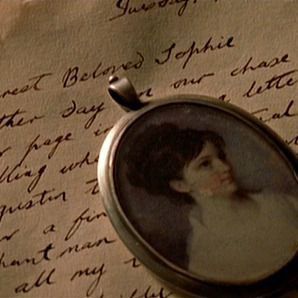 Tuesday,
rest Beloved Sophie
ther day on our chase
r page in letter
lling wh
gustus t
r a fin
hant man
all my t